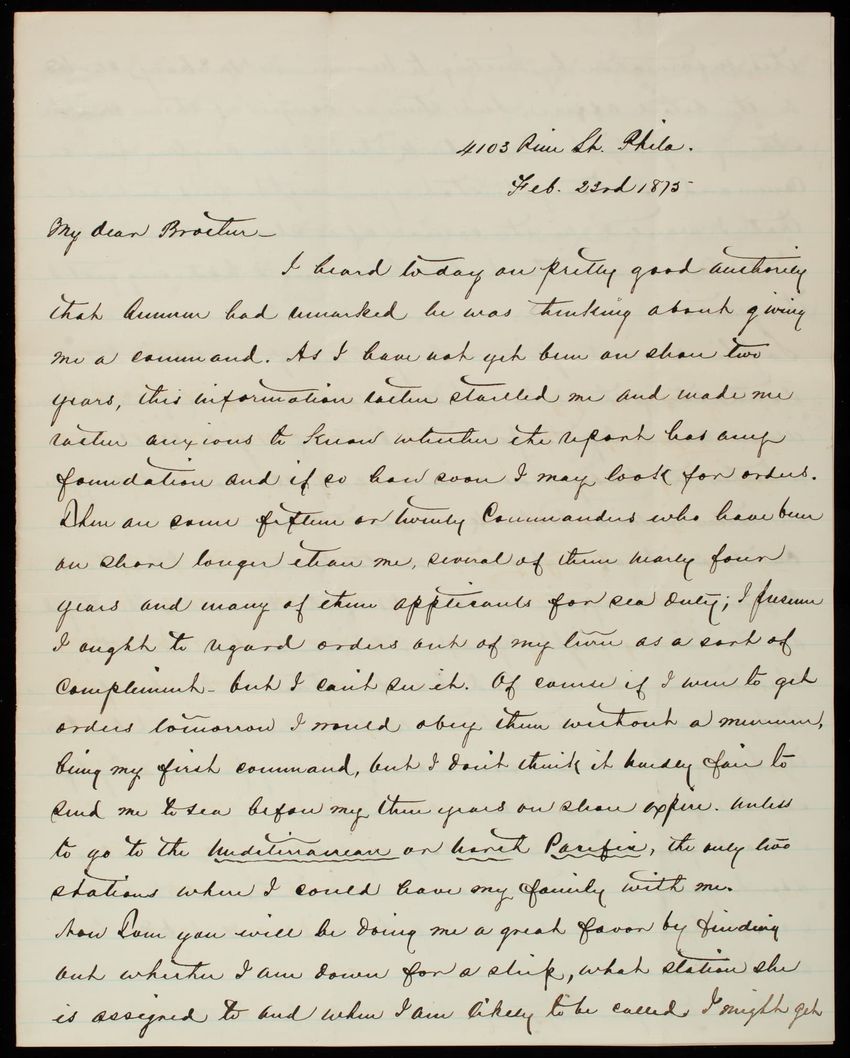 4103 Pine St. Phila.
Feb. 23rd 1875
My dear Brother—
I heard today on pretty good authority
that Ammen had remarked he was thinking about giving
me a command. As I have not yet been on shore two
years, this information rather startled me and made me
rather anxious to know whether the report has any
foundation and if so how soon I may look for orders.
There are some fifteen or twenty Commanders who have been
on shore longer than me, several of them nearly four
years and many of them applicants for sea duty; I presume
I ought to regard orders out of my turn as a sort of
compliment – but I can't see it. Of course if I were to get
orders tomorrow I would obey them without a murmur,
being my first command, but I don't think it hardly fair to
send me to sea before my three years on shore expire. Unless
to go to the Mediterranean or North Pacific, the only two
stations where I could have my family with me.
Now Tom you will be doing me a great favor by finding
out whether I am down for a ship, what station she
is assigned to and when I am likely to be called. I might get